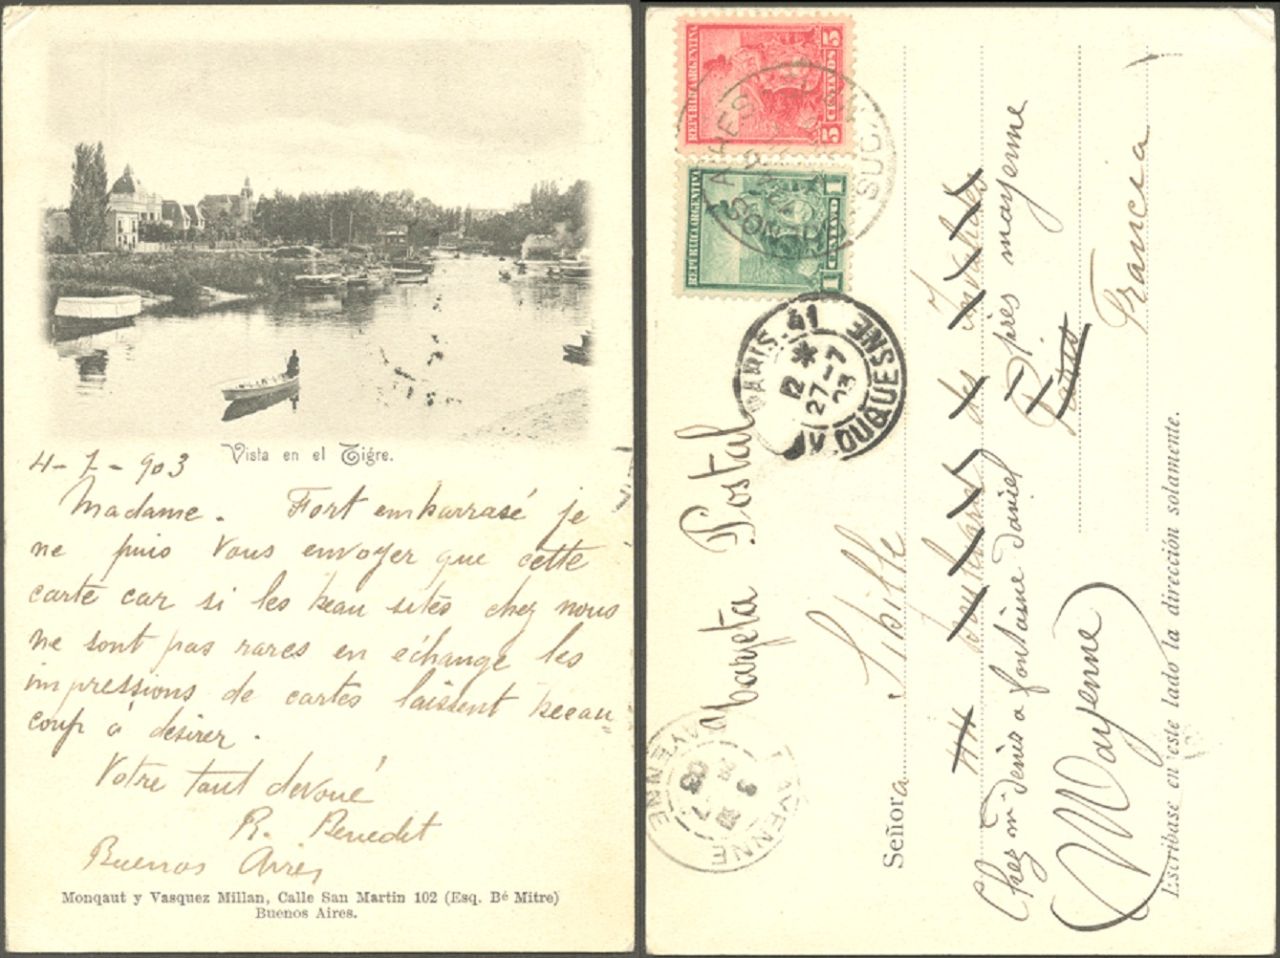 Vista en el Tigre.
4-7-903
Madame. Fort embarrasé je
ne puis vous envoyer que cette
carte car si les beau sités chez nous
ne sont pas rares en échange les
impressions de cartes laissent beeau
coup à désirer.
Votre tout devoué
R. Benedet
Buenos Aires
Monqaut y Vasquez Millan, Calle San Martin 102 (Esq. Bé Mitre)
Buenos Aires.
REPUBLICA ARGENTINA
5 CENTAVOS 5
REPUBLICA ARGENTINA
1 CENTAVO 1
PARIS. 41
12 *
27-7
03
AV DUQUESNE
MAYENNE
MAYENNE
Postal
Señora Sibille
44 des Invalides
Chez mr denis a fontaine daniel
près mayenne
Paris
Mayenne
Francia
Escribase en este lado la dirección solamente.